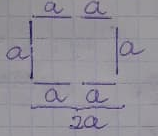 a a
a a
a a
2a